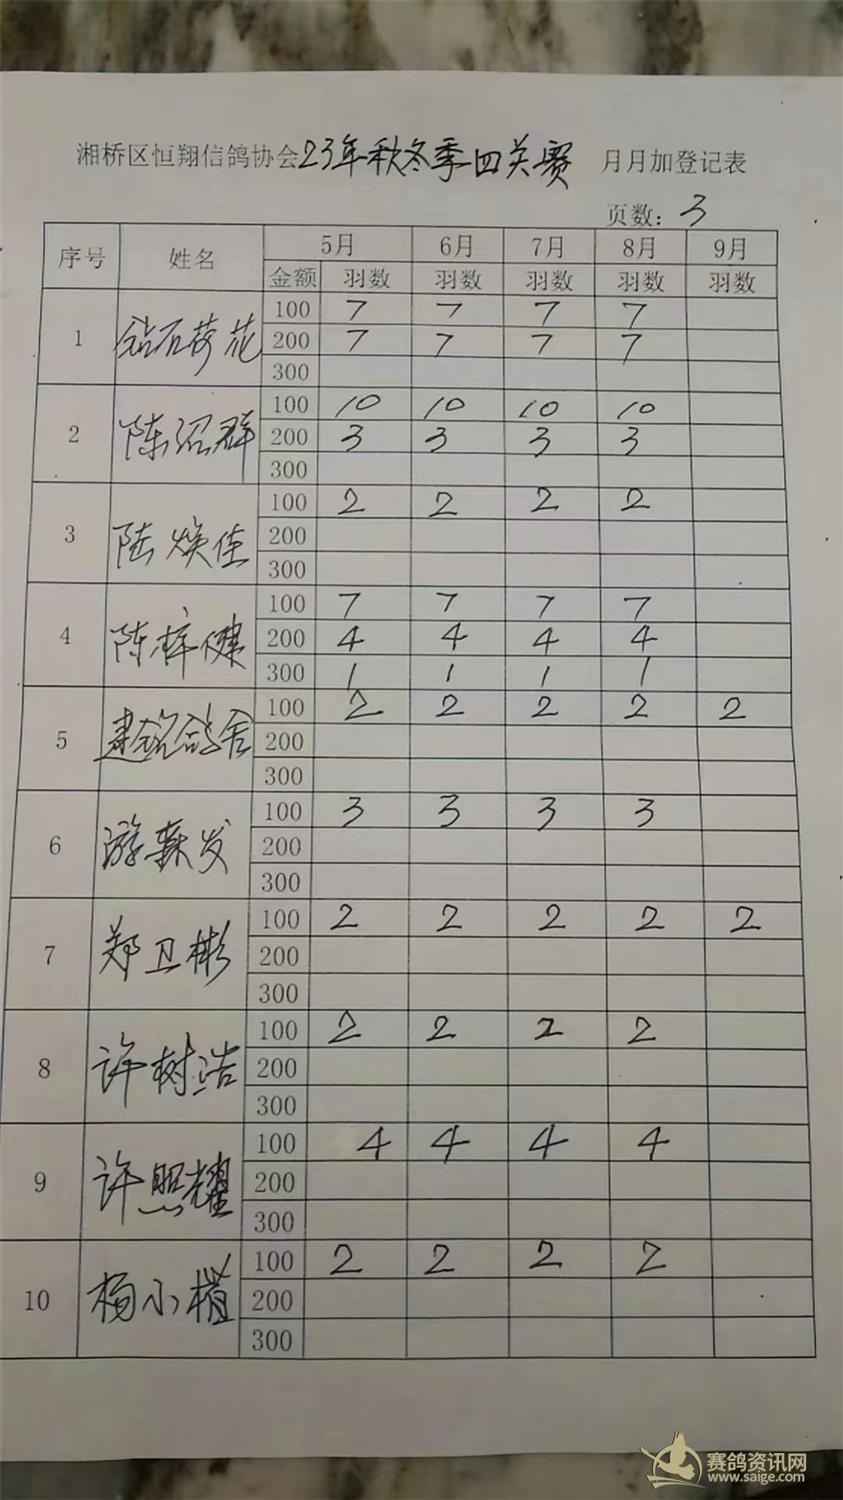 湘桥区恒翔信鸽协会23年秋冬季四关赛 月月加登记表
页数: 3
序号 姓名 5月 6月 7月 8月 9月
金额 羽数 羽数 羽数 羽数 羽数
1 钻石荷花 100 7 7 7 7
200 7 7 7 7
300
2 陈沼群 100 10 10 10 10
200 3 3 3 3
300
3 陆焕佳 100 2 2 2 2
200
300
4 陈梓健 100 7 7 7 7
200 4 4 4 4
300 1 1 1 1
5 建铭鸽舍 100 2 2 2 2 2
200
300
6 游森发 100 3 3 3 3
200
300
7 郑卫彬 100 2 2 2 2 2
200
300
8 许树浩 100 2 2 2 2
200
300
9 许照耀 100 4 4 4 4
200
300
10 杨小 100 2 2 2 2
200
300
赛鸽资讯网
www.saige.com